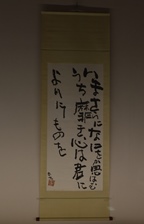 いまさらになにをか思はむ
うち靡き心は君に
よりにしものを